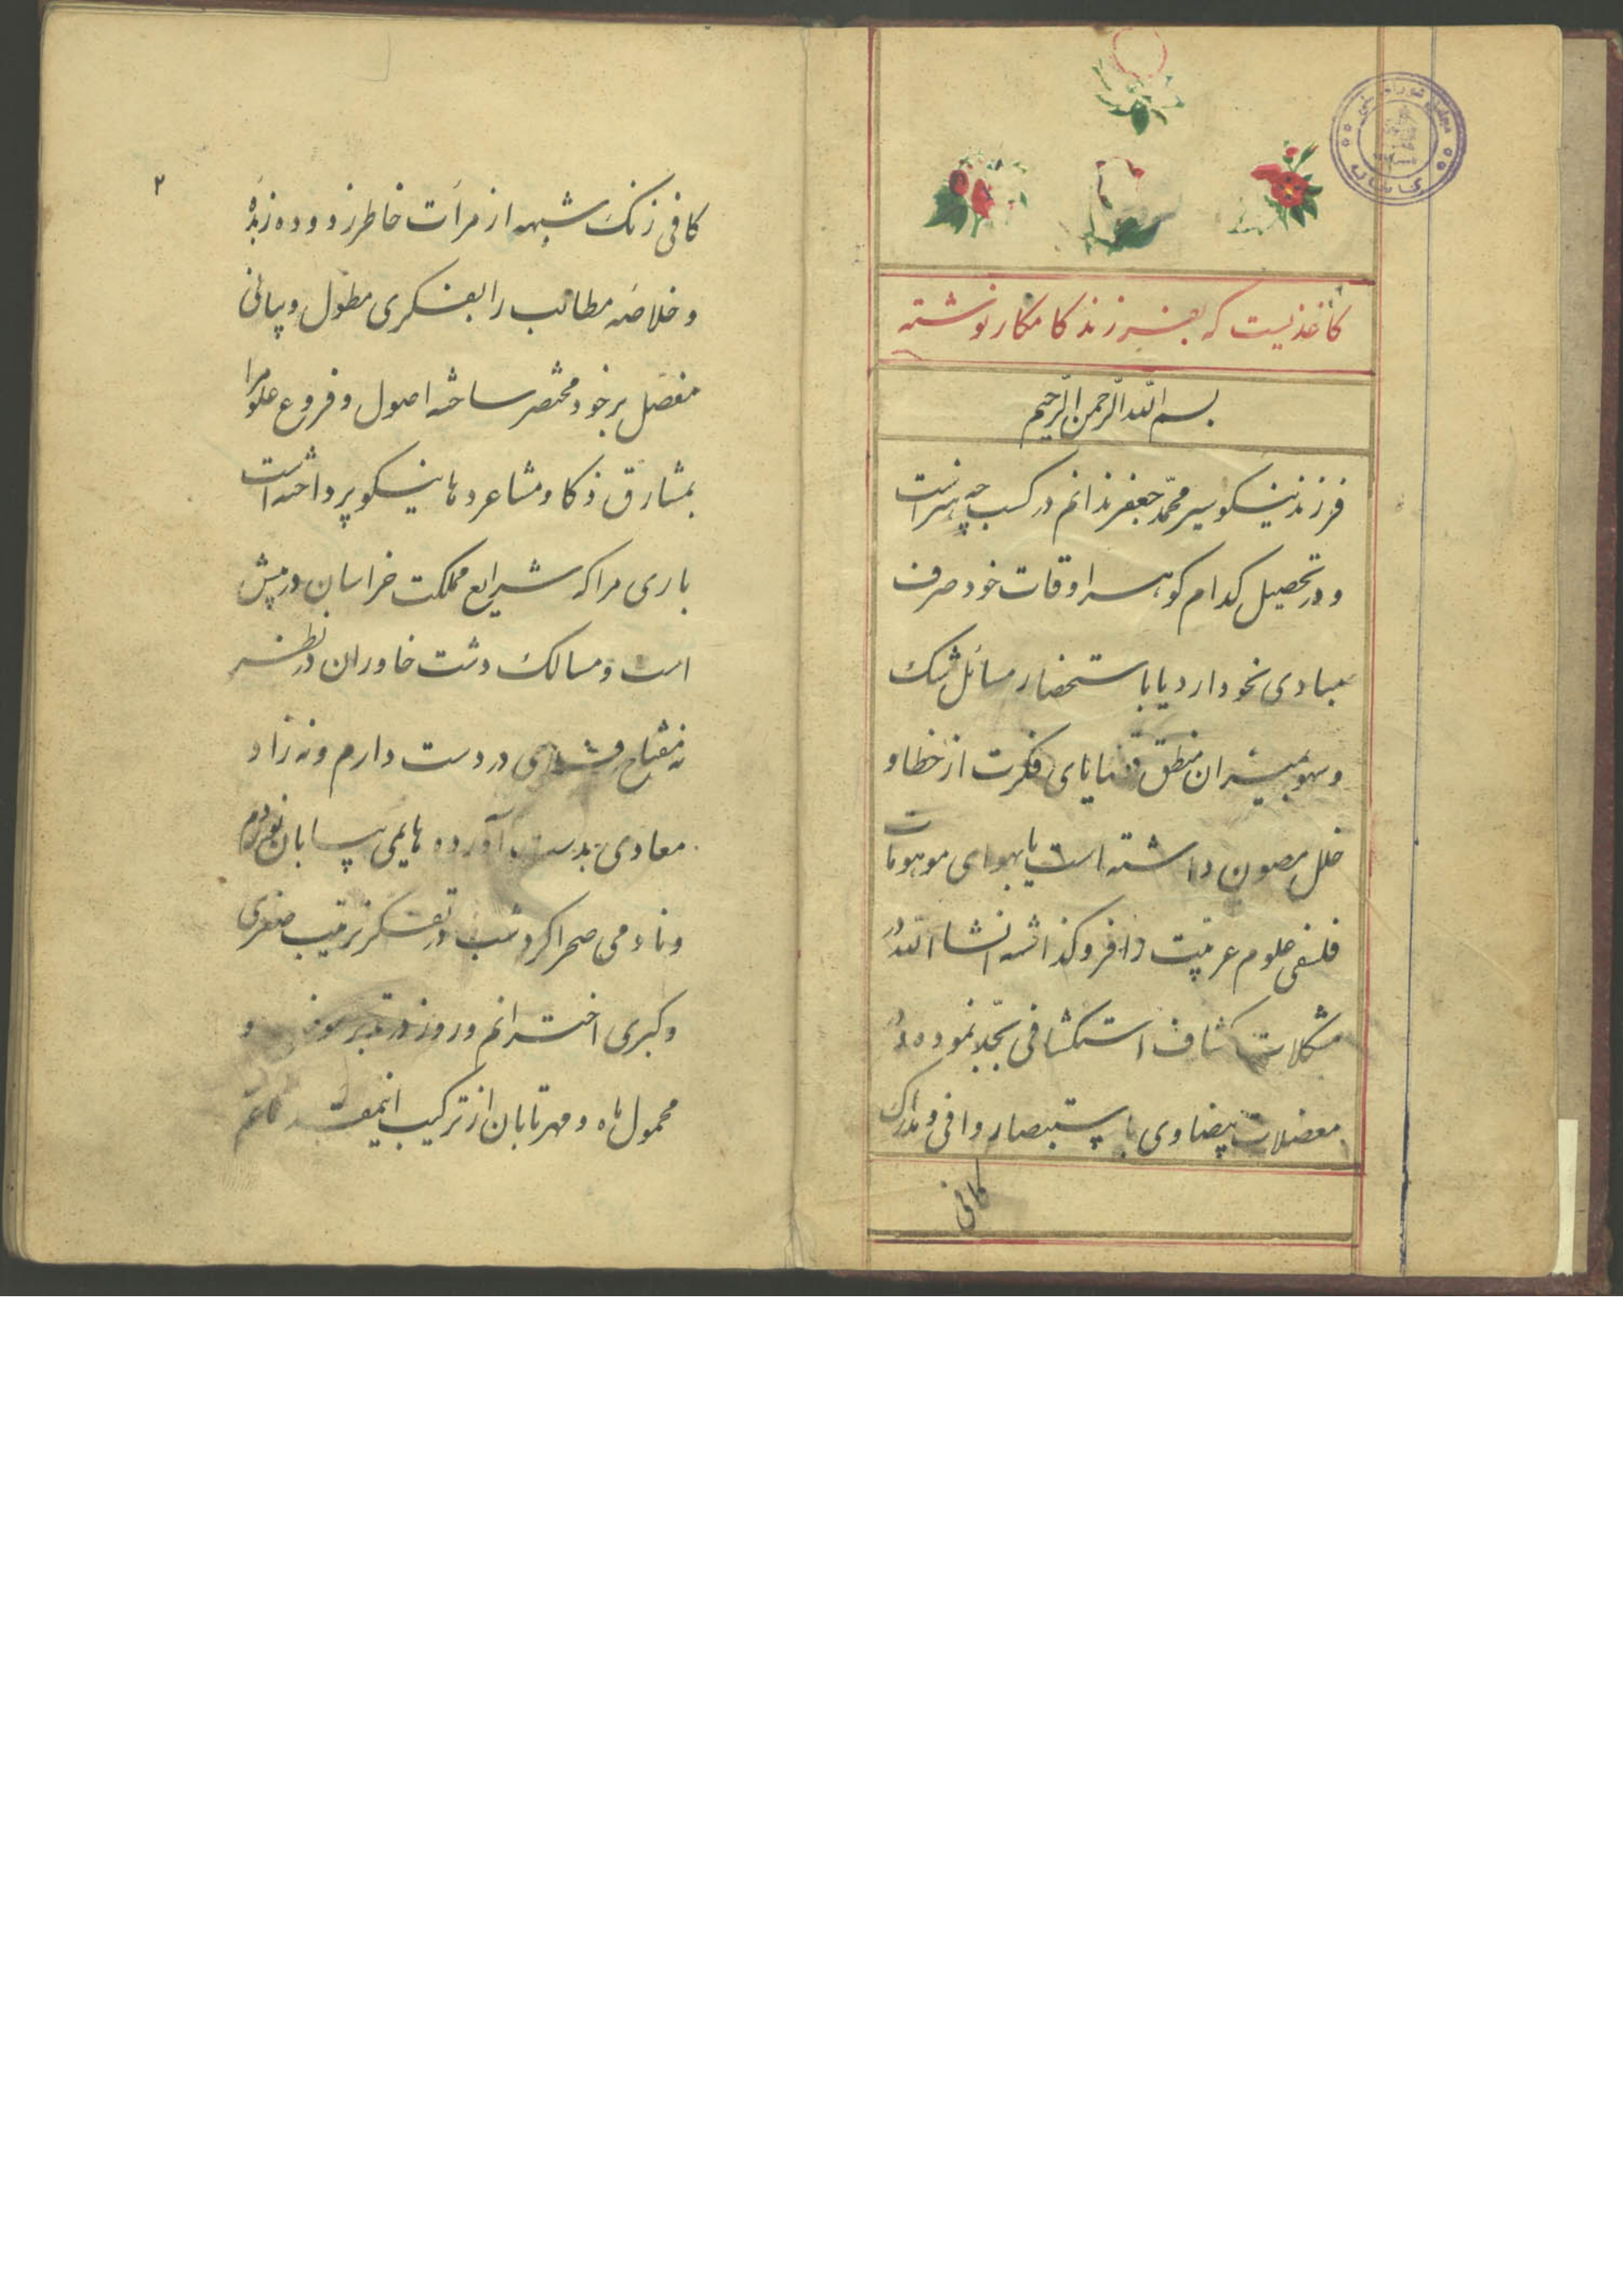 کاغذیست که بفرزند کامکار نوشته
بسم الله الرحمن الرحیم
فرزند نیکو سیر محمد جعفر ندانم در کسب چه هنر است
و در تحصیل کدام کوهر اوقات خود صرف
مبادی نحو دارد یا با ستحضار مسائل تمسک
و سهو بمیزان منطق قضایای فکرت از خطا و
خلل مصون داشته است یا بهوای موهومات
فلسفی علوم عربیت را فرو کذاشته انشا الله در
مشکلات کشاف استکشافی بجد نموده در
معضلات بیضاوی با ستبصار وافی و مدارک
کافی
۲
کافی زنک شبهه از مرآت خاطر زدوده زبده
و خلاصه مطالب را بفکری مطول و بیانی
مفصل بر خود مختصر ساخته اصول و فروع علوم را
بمشارق ذکا و مشاعر دها نیکو پرداخته است
باری مرا که شرایع مملکت خراسان در پیش
است و مسالک دشت خاوران در نظر
نه مفتاح در دست دارم و نه زاد
معادی بدست آورده هایمی بیابان نوردم
و نادمی صحرا کرد شب در تفکر ترتیب صغری
و کبری اخترانم و روز در تدبر و
محمول ماه و مهر تابان از ترکیب